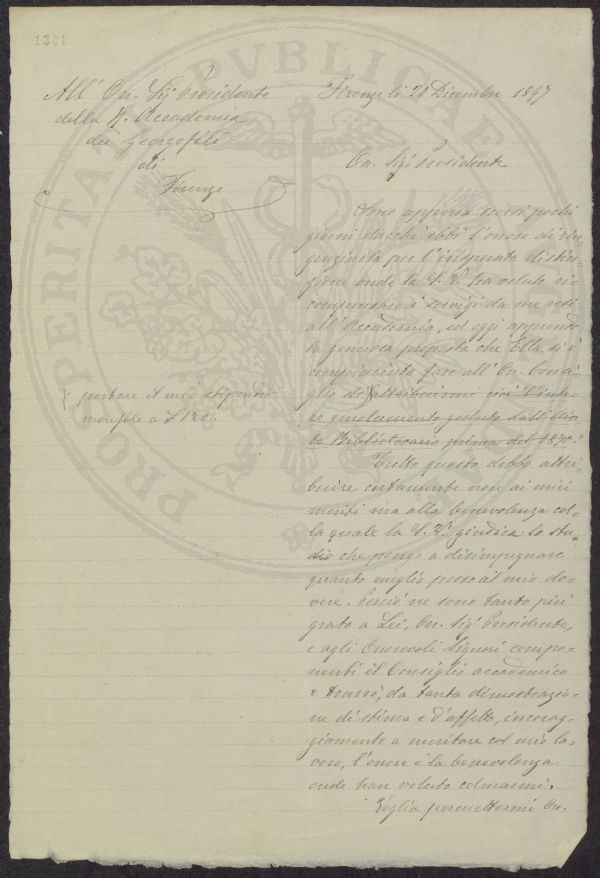 1331
All' On. Sig. Presidente
della R. Accademia
dei Georgofili
di
Firenze
Firenze lì 21 Dicembre 1897
On. Sig. Presidente
Sono appena scorsi pochi
giorni dacchè ebbi l'onore di rin-
graziarla per l'insperata distin-
zione onde la S. V. ha voluto ri-
compensare i servigi da me resi
all'Accademia, ed oggi apprendo
la generosa proposta che Ella si è
compiaciuta fare all'On. Consi-
glio di attribuirmi così l'inte-
ro emolumento goduto dall'
Bibliotecario prima del
portare il mio stipendio
mensile a L 120.
Tutto questo debbo attri-
buire certamente non ai miei
meriti ma alla benevolenza col-
la quale la S. V. giudica lo stu-
dio che pongo a disimpegnare
quanto meglio posso il mio do-
vere. Perciò ne sono tanto più
grato a Lei, On. Sig. Presidente,
e agli Onorevoli Signori compo-
nenti il Consiglio accademico
e trarrò, da tanta dimostrazio-
ne di stima e d'affetto, incorag-
giamento a meritare col mio la-
voro, l'onore e la benevolenza
onde han voluto colmarmi.
Voglia permettermi On.
PROSPERITATI PVBLICAE